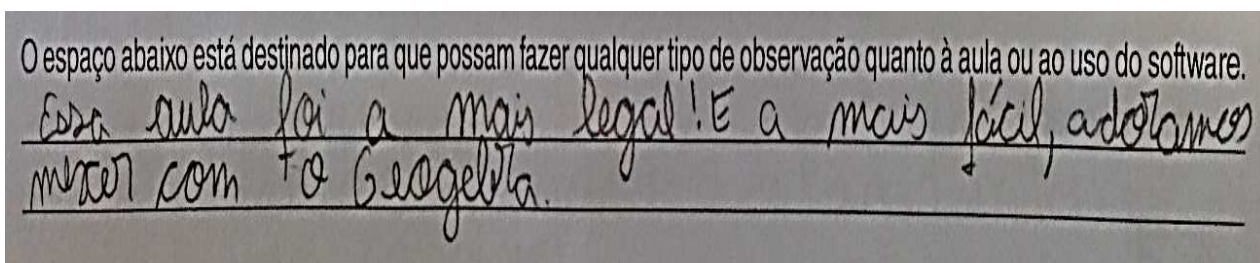 O espaço abaixo está destinado para que possam fazer qualquer tipo de observação quanto à aula ou ao uso do software.
Essa aula foi a mais legal! E a mais fácil, adoramos
mexer com o Geogebra.